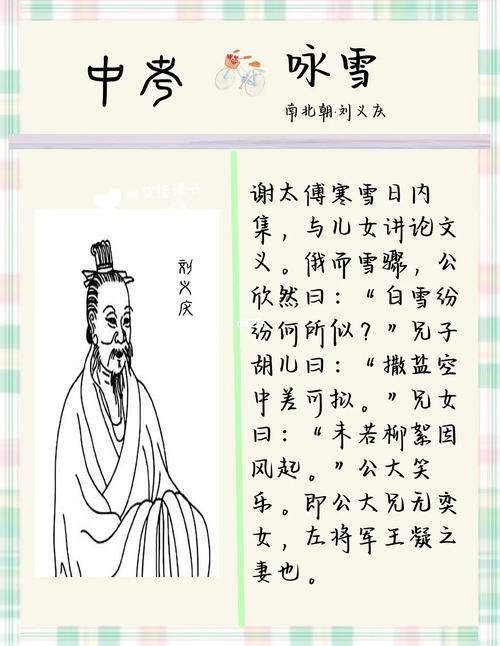 中考
咏雪
南北朝·刘义庆
刘义庆
谢太傅寒雪日内
集，与儿女讲论文
义。俄而雪骤，公
欣然曰：“白雪纷
纷何所似？”兄子
胡儿曰：“撒盐空
中差可拟。”兄女
曰：“未若柳絮因
风起。”公大笑
乐。即公大兄无奕
女，左将军王凝之
妻也。